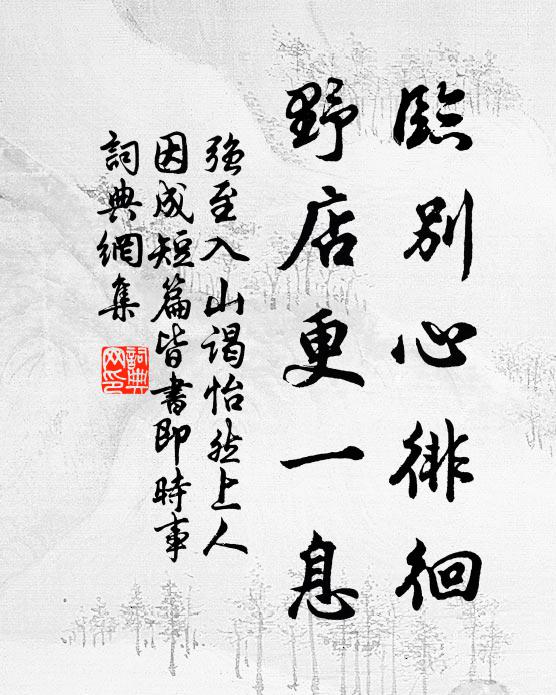 臨別心徘徊
野店更一息
強至入山謁怡然上人
因成短篇皆書即時事
詞典網集
詞典网印